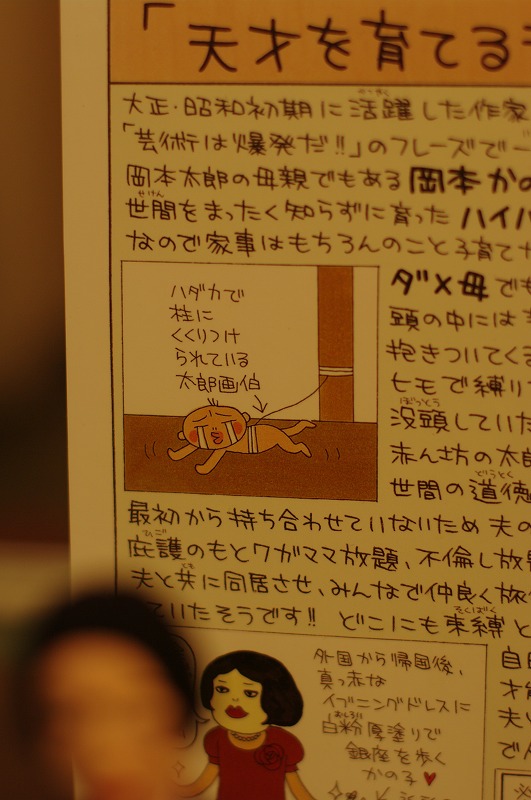 「天才を育てる
大正・昭和初期に活躍した作家
「芸術は爆発だ!!」のフレーズで
岡本太郎の母親でもある 岡本かの
世間をまったく知らずに育った ハイパ
なので家事はもちろんのこと子育て
ダメ母でも
頭の中には
抱きついてくる
ヒモで縛り
没頭していた
赤ん坊の太郎
世間の道徳
ハダカで
柱に
くくりつけ
られている
太郎画伯
最初から持ち合わせていないため 夫の
庇護のもとワガママ放題、不倫し放題
夫と共に同居させ、みんなで仲良く旅
ていたそうです!! どこにも束縛と
外国から帰国後、
真っ赤な
イブニングドレスに
白粉厚塗りで
銀座を歩く
かの子♥
自由
才能
夫い
でん